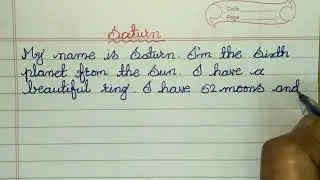 Date
Page
Saturn
My name is Saturn. I'm the sixth
planet from the Sun. I have a
beautiful ring. I have 62 moons and